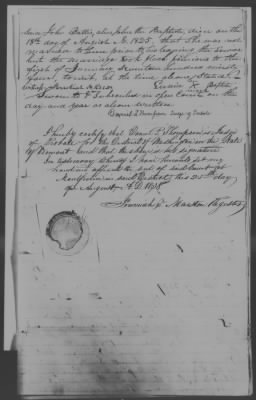 John Battis, alias John the Baptist, died on the
18th day of August A.D. 1825, that she was not
married to him prior to his leaving the service
but the marriage took place previous to the
first of January, Seventeen hundred ninety
four, to wit, at the time above stated.
Sworn to & Subscribed in open Court on the
day and year as above written
Daniel P. Thompson Judge of Probate
I hereby certify that Daniel P. Thompson is Judge
of Probate for the District of Washington in the State
of Vermont and that the above is his signature
In testimony whereof I have hereunto set my
hand and affixed the seal of said Court at
Montpelier in said District, this 25th day
of August A.D. 1838
Register